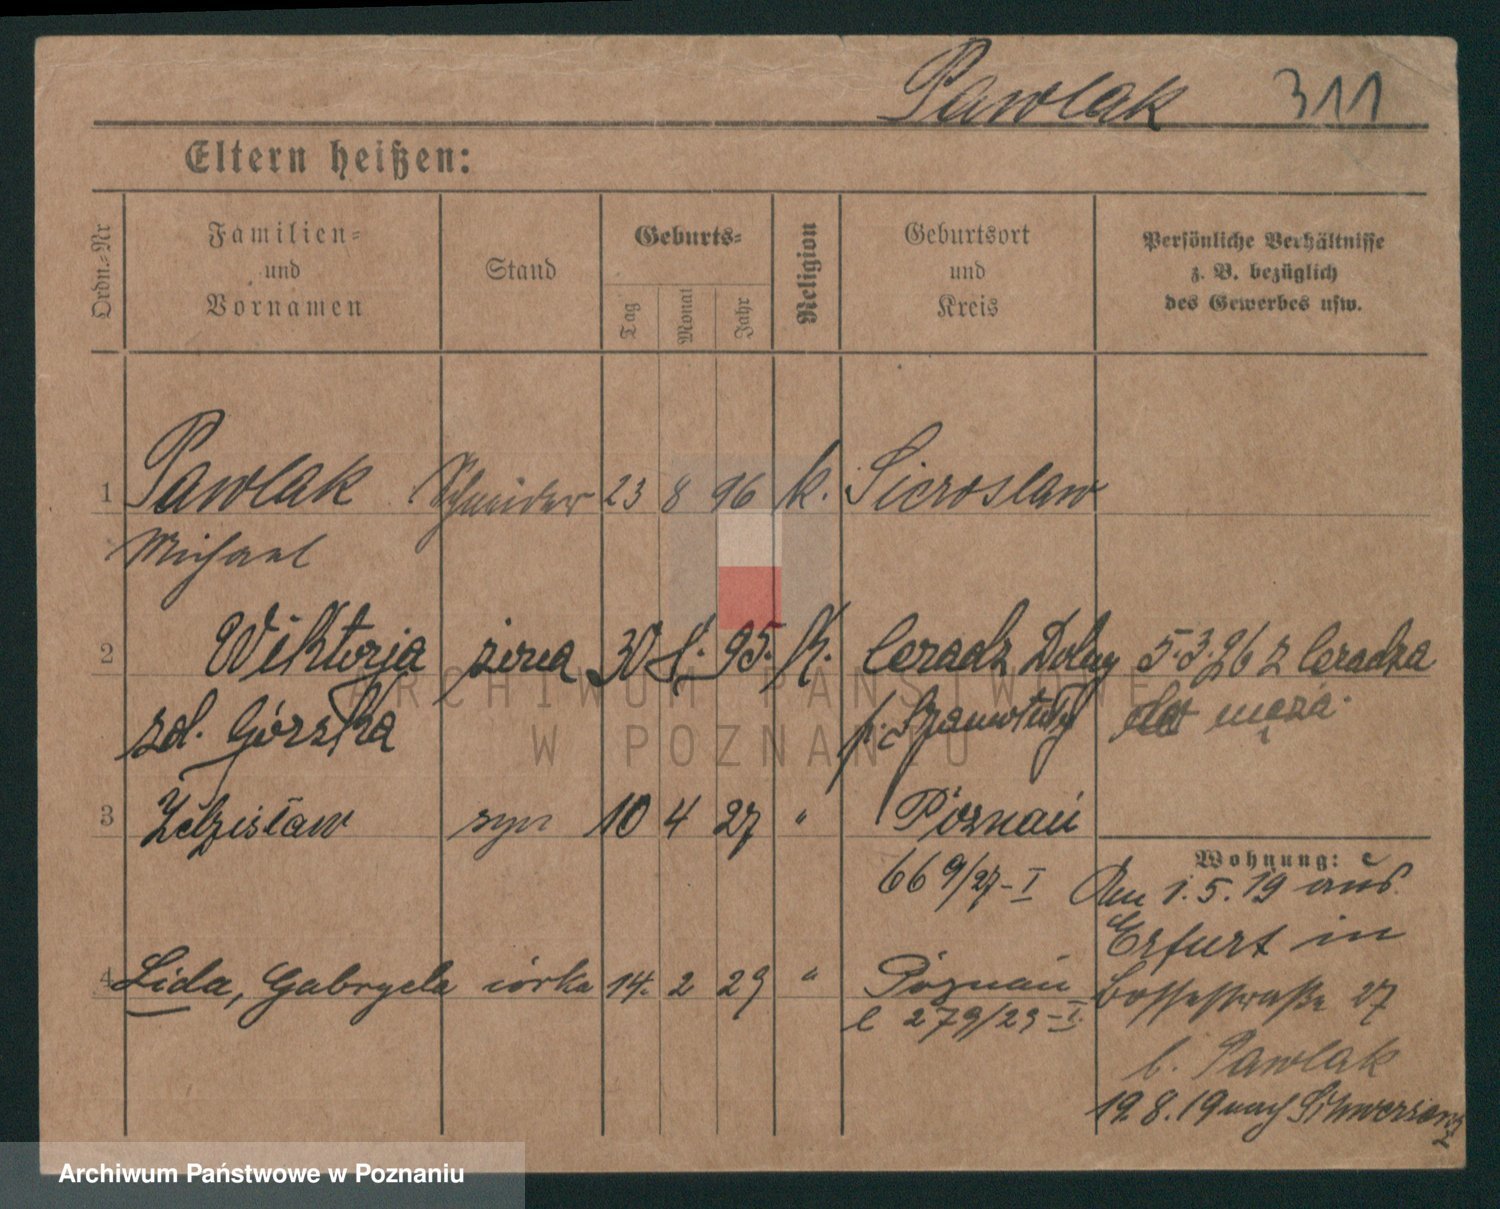 Pawlak 311
Eltern heißen:
Ordn.-Nr
Familien-
und
Vornamen
Stand
Geburts-
Tag
Monat
Jahr
Religion
Geburtsort
und
Kreis
Persönliche Verhältnisse
z. B. bezüglich
des Gewerbes usw.
1 Pawlak Schneider 23 8 96 k. Sieroslaw
Michael
2 Wiktorja żona 30 95. K. Ceradz Dolny 5.3.26 z Ceradza
zd. Górska p. Szamotuły do męża.
3 Zdzisław syn 10 4 27 " Poznań
669/27-I
Wohnung:
Am 1.5.19 aus
Erfurt in
4 Lida, Gabryela córka 14. 2 29 " Poznań
279/29-I.
Bossestraße 27
b. Pawlak
19.8.19 nach Schwersenz
ARCHIWUM PAŃSTWOWE
W POZNANIU
Archiwum Państwowe w Poznaniu